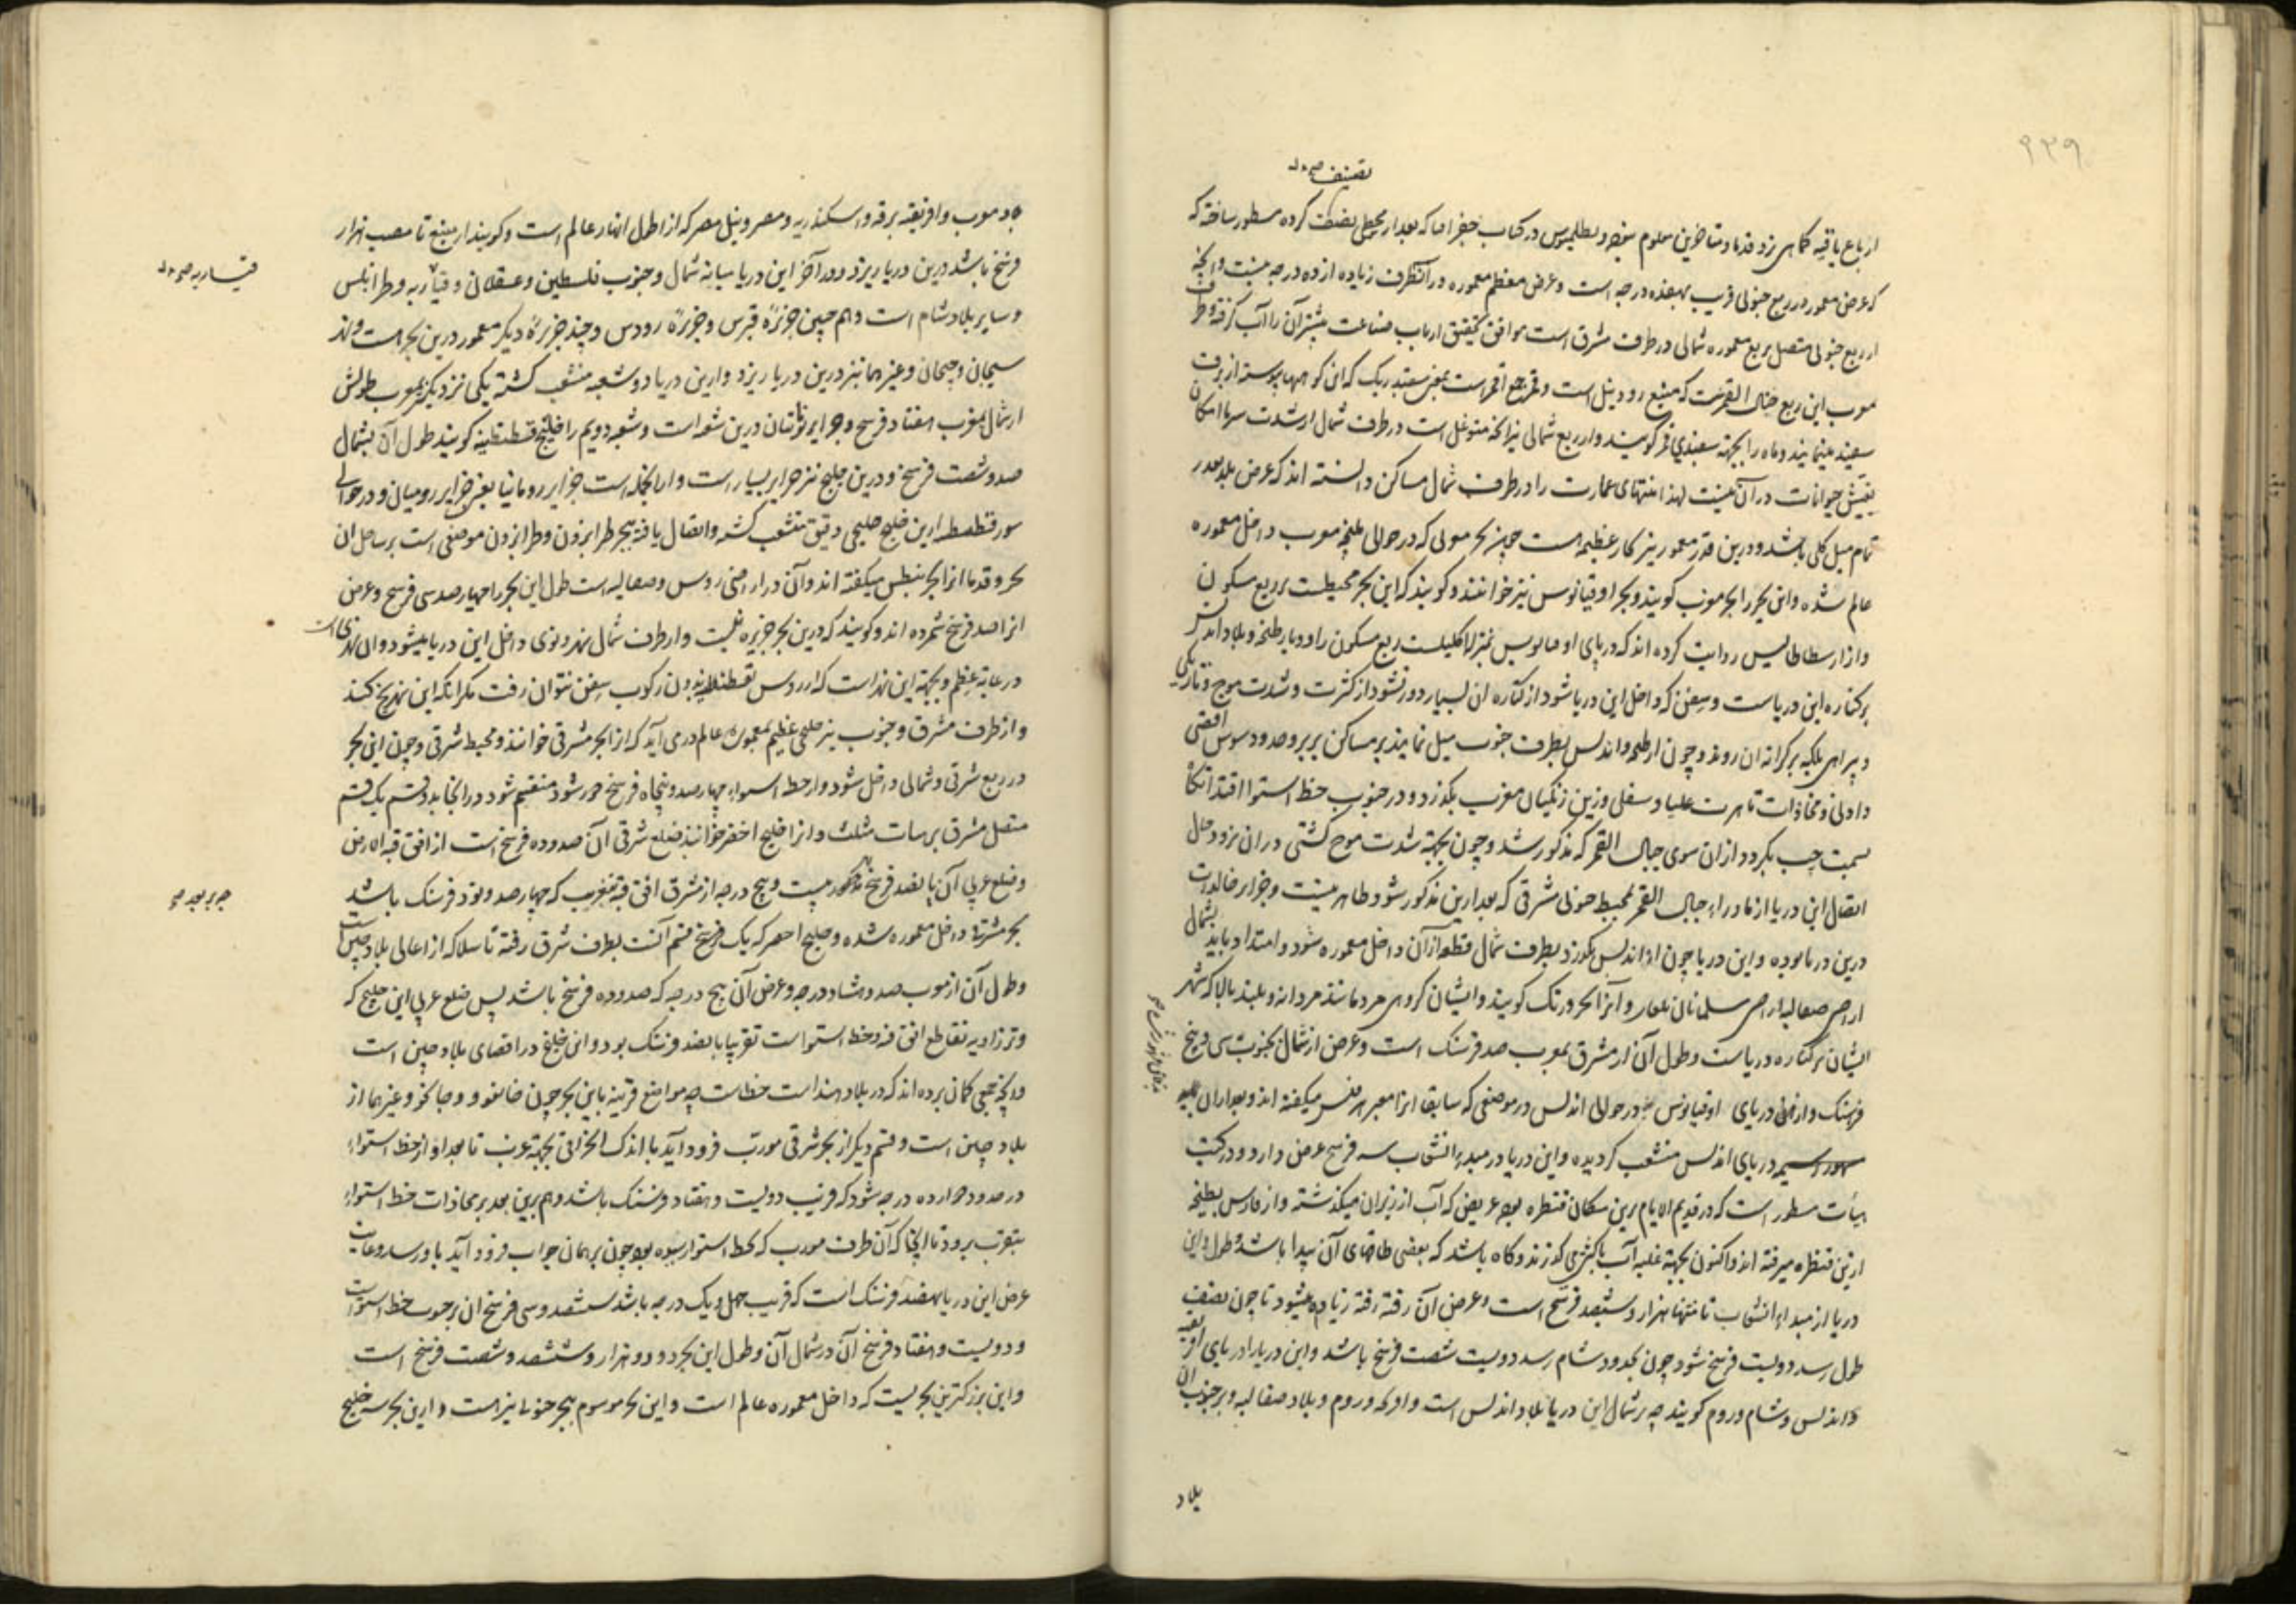 ۹۳۹
تصنیف صح
ارباع باقیه کماهی نزد قدما و متاخرین معلوم نبوده و بطلیموس در کتاب جغرافیا که بعد از مجسطی تصنیف کرده مسطور ساخته که
که عرض معموره در ربع جنوبی قریب بهفده درجه است و عرض معظم معموره در آنطرف زیاده از ده درجه نیست و آنچه
از ربع جنوبی متصل بربع معموره شمالی در طرف مشرق است موافق تحقیق ارباب صناعت بیشتر آن را آب گرفته و طرف
مغرب این ربع جبال القمرست که منبع رود نیل است و قمر جمع اقمر است بمعنی سفید ریک که این کوهها پیوسته از برف
سفید مینمایند و ماه را بجهة سفیدی قمر گویند و از ربع شمالی نیز آنچه متوغل است در طرف شمال از شدت سرما امکان
تعیش حیوانات در آن نیست لهذا منتهای عمارت را در طرف شمال مساکن دانسته اند که عرض بلد بقدر
تمام میل کلی باشد و درین قدر معمور نیز بحار عظیمه است چون بحر مغربی که در حوالی طنجه مغرب داخل معموره
عالم شده و این بحر را بحر مغرب گویند و بحر اوقیانوس نیز خوانند و گویند که این بحر محیطست بربع مسکون
و از ارسطاطالیس روایت کرده اند که دریای اوقیانوس بمنزله اکلیلست ربع مسکون را و دیار طنجه و بلاد اندلس
بر کناره این دریاست و سفن که داخل این دریا شود از کناره آن بسیار دور نشود از کثرت و شدت موج و تاریکی
و بیراهی بلکه بر کرانه آن روند و چون از طنجه و اندلس بطرف جنوب میل نمایند بر مساکن بربر و حدود سوس اقصی
و ادنی و محاذات تاهرت علیا و سفلی و زمین زنگیان مغرب بگذرد و در جنوب خط استوا افتد آنگاه
بسمت چپ بگردد از آن سوی جبال القمر که مذکور شد و چون بجهة شدت موج کشتی در آن نرود حال
اتصال این دریا از ماوراء جبال القمر بمحیط جنوبی مشرقی که بعد ازین مذکور شود ظاهر نیست و جزایر خالدات
درین دریا بوده و این دریا چون از اندلس بگذرد بطرف شمال قطعه از آن داخل معموره شود و امتداد یابد بشمال
ارض صقالبه از ارض مسلمانان بلغار و آنرا بحر ورنک گویند و ایشان گروهی مردمانند مردانه و بلند بالا که شهر
ایشان بر کناره دریاست و طول آن از مشرق بمغرب صد فرسنک است و عرض از شمال بجنوب سی و پنج
فرسنک و از همین دریای اوقیانوس در حوالی اندلس در موضعی که سابقا آنرا معبر هرقلس میگفته اند و بعد از آن
دریای اندلس منشعب گردیده و این دریا در مبدء انشعاب سه فرسخ عرض دارد و در کتب
هیأت مسطور است که در قدیم الایام برین مکان قنطره بوده عریض که آب از زیر آن میگذشته و از فارس بطنجه
ازین قنطره میرفته اند و اکنون بجهة غلبه آب باکشتی گذرند و گاه باشد که بعضی طاقهای آن پیدا باشد و طول این
دریا از مبداء انشعاب تا منتها هزار و ششصد فرسخ است و عرض آن رفته رفته زیاده میشود تا چون بنصف
طول رسد دویست فرسخ شود چون بحدود شام رسد دویست شصت فرسخ باشد و این دریا را دریای افریقیه
و اندلس و شام و روم گویند چه بر شمال این دریا بلاد اندلس است و افرنجه و روم و بلاد صقالبه و بر جنوب آن
بلاد
بلاد مغرب و افریقیه برقه و اسکندریه و مصر و نیل مصر که از اطول انهار عالم است و گویند از منبع تا مصب هزار
فرسخ باشد درین دریا ریزد و در آخر این دریا میانه شمال و جنوب فلسطین و عسقلان و قیساریه و طرابلس
قیساریه صح
و سایر بلاد شام است و هم چنین جزیره قبرس و جزیره رودس و چند جزیره دیگر معمور درین بحر هست و رود
سیحان و جیحان و غیرهما نیز درین دریا ریزد و ازین دریا دو شعبه منشعب گشته یکی نزدیکتر بمغرب طولش
از شمال بمغرب هفتاد فرسخ و جزایر یونانیان درین شعبه است و شعبه دویم را خلیج قسطنطنیه گویند طول آن بشمال
صد و شصت فرسخ و درین خلیج نیز جزایر بسیار است و از آنجمله است جزایر رومانیا یعنی جزایر رومیان و در حوالی
سور قسطنطنیه ازین خلیج خلیجی دقیق منشعب گشته و اتصال یافته ببحر طرابزون و طرابزون موضعی است بر ساحل آن
بحر و قدما آنرا بحر بنطس میگفته اند و آن در اراضی روس و صقالبه است طول این بحر را چهارصد سی فرسخ و عرض
آنرا صد فرسخ شمرده اند و گویند که درین بحر جزیره نیست و از طرف شمال نهر بزرگی داخل این دریا میشود و آن نهری است
در غایة عظم و بجهة این نهر است که از روس بقسطنطنیه بدون رکوب سفن نتوان رفت مگر آنکه این نهر یخ کند
و از طرف مشرق و جنوب نیز خلیجی عظیم بمعموره عالم درمی آید که آنرا بحر مشرقی خوانند و محیط شرقی و چون این بحر
در ربع شرقی و شمالی داخل شود و از خط استواء چهارصد و پنجاه فرسخ دور شود منقسم شود در آنجا بدو قسم یک قسم
متصل مشرق بر هیات مثلث و آنرا خلیج اخضر خوانند ضلع شرقی آن صد و ده فرسخ است از افق قبه الارض
و ضلع غربی آن پانصد فرسخ مذکور بیست و پنج درجه از مشرق افق قبه بمغرب که چهارصد و نود فرسنک باشد
بحر مشرق داخل معموره شده و خلیج اخضر که یک قسم آنست بطرف شرق رفته تا سلاکه از اعالی بلاد چین است
و طول آن از مغرب صد و هشتاد درجه و عرض آن پنج درجه که صد و ده فرسخ باشد پس ضلع غربی این خلیج که
وتر زاویه تقاطع افق قبه و خط استواست تقریبا پانصد فرسنک بود و این خلیج در اقصای بلاد چین است
و آنچه جمعی گمان برده اند که در بلاد هند است خطاست چه مواضع قریبه باین بحر چون خانفو و خانجو و غیرهما از
بلاد چین است و قسم دیگر از بحر شرقی مورب فرود آید با اندک انحرافی بجهة غرب تا بعد او از خط استواء
در حدود دوازده درجه شود که قریب دویست و هفتاد فرسنک باشد و هم برین بعد بر محاذات خط استواء
بمغرب برود تا آنجا که آن طرف مورب که بخط استوا رسیده بود چون بر همان جواب فرود آید باو رسد و غایت
عرض این دریا نهصد فرسنک است که قریب چهل و یک درجه باشد ششصد و سی فرسخ آن بر جنوب خط استواست
و دویست و هفتاد فرسخ آن در شمال آن و طول این بحر دو هزار و ششصد و شصت فرسخ است
و این بزرگترین بحریست که داخل معموره عالم است و این بحر موسوم ببحر جنوب نیز هست و ازین بحر سه خلیج